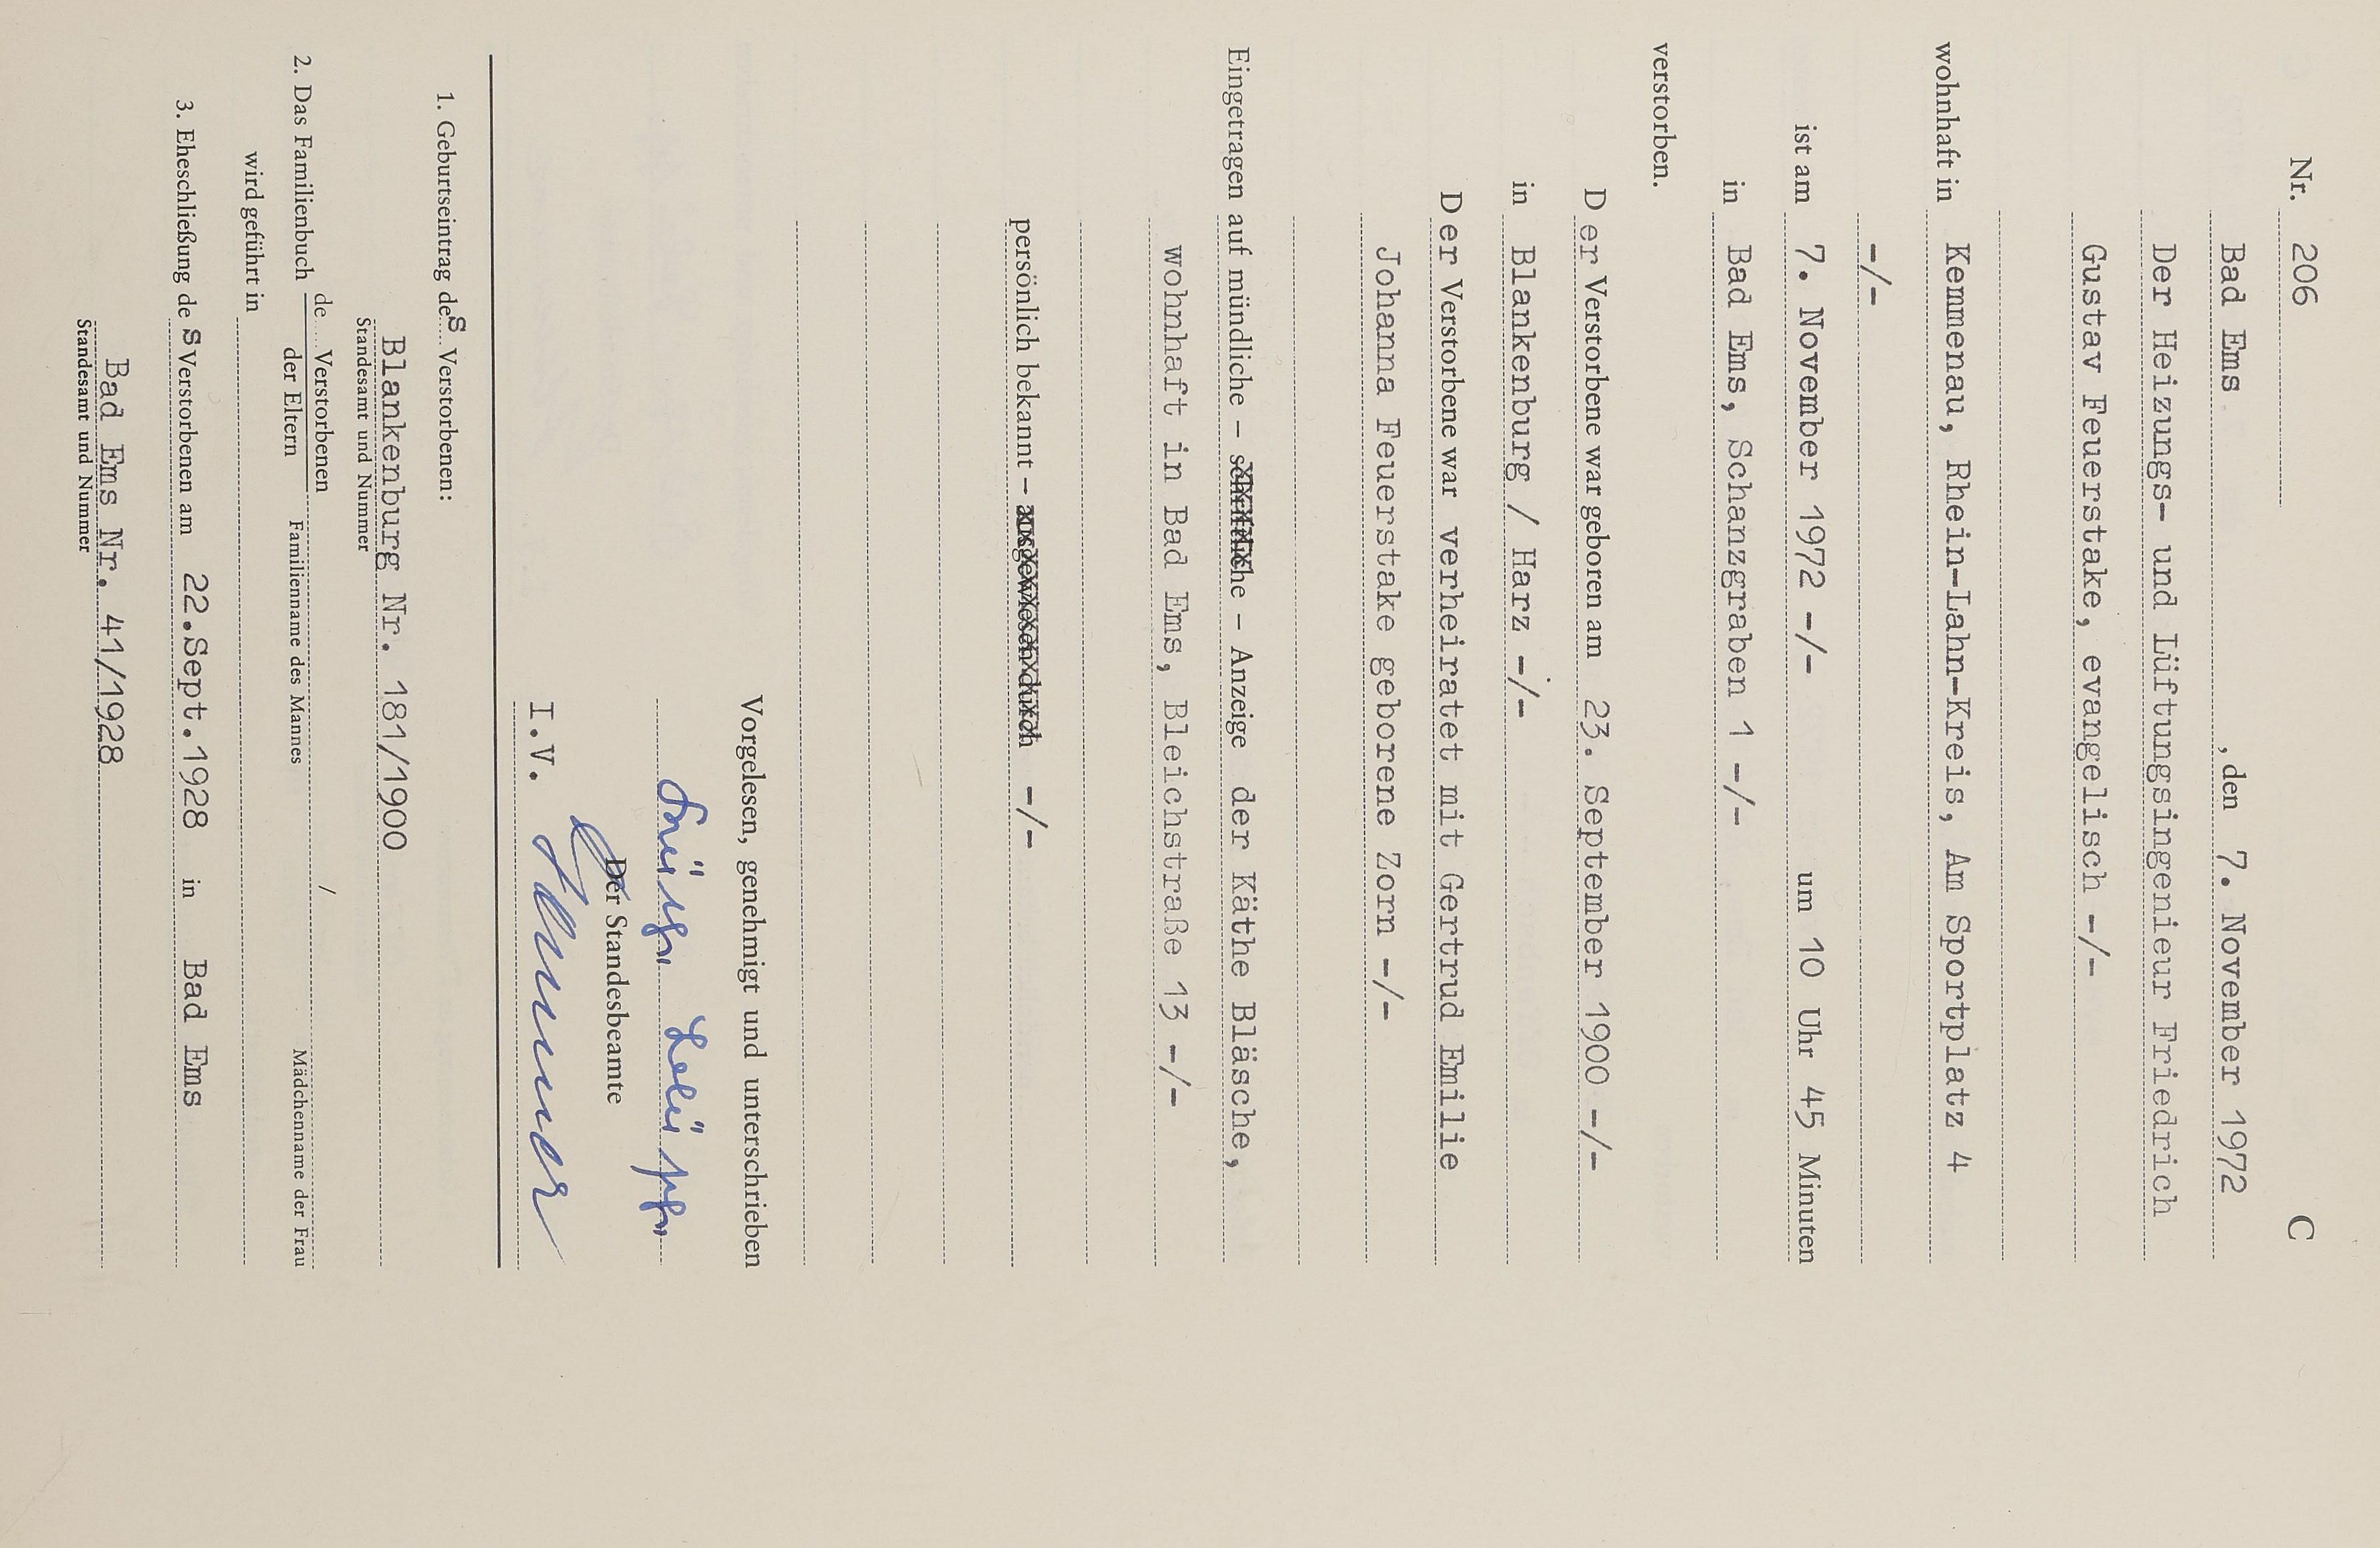 Nr. 206 C
Bad Ems , den 7. November 1972
Der Heizungs- und Lüftungsingenieur Friedrich
Gustav Feuerstake, evangelisch -/-
wohnhaft in Kemmenau, Rhein-Lahn-Kreis, Am Sportplatz 4
-/-
ist am 7. November 1972 -/- um 10 Uhr 45 Minuten
in Bad Ems, Schanzgraben 1 -/-
verstorben.
Der Verstorbene war geboren am 23. September 1900 -/-
in Blankenburg / Harz -/-
Der Verstorbene war verheiratet mit Gertrud Emilie
Johanna Feuerstake geborene Zorn -/-
Eingetragen auf mündliche - schriftliche - Anzeige der Käthe Bläsche,
wohnhaft in Bad Ems, Bleichstraße 13 -/-
persönlich bekannt - ausgewiesen durch -/-
Vorgelesen, genehmigt und unterschrieben
Der Standesbeamte
I.V.
1. Geburtseintrag des Verstorbenen:
Blankenburg Nr. 181/1900
Standesamt und Nummer
2. Das Familienbuch de Verstorbenen /
der Eltern Familienname des Mannes Mädchenname der Frau
wird geführt in
3. Eheschließung des Verstorbenen am 22.Sept.1928 in Bad Ems
Bad Ems Nr. 41/1928
Standesamt und Nummer